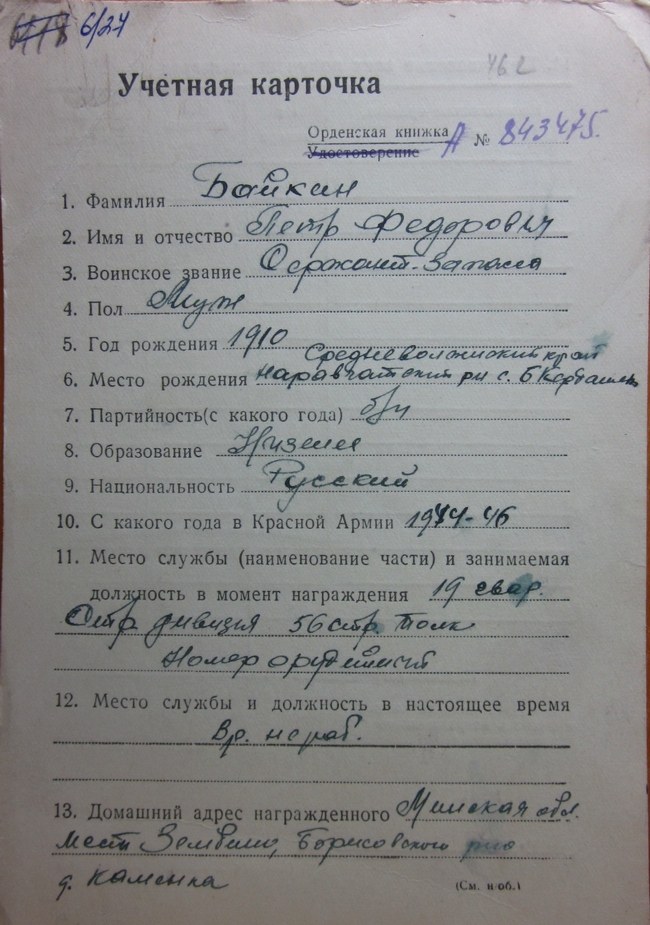 6/27
46.2
Учетная карточка
Орденская книжка А № 843475.
Удостоверение
1. Фамилия Байкин
2. Имя и отчество Петр Федорович
3. Воинское звание Сержант-Запаса
4. Пол Муж
5. Год рождения 1910
Средневолжский край
6. Место рождения Наравчатский рн с. Б
7. Партийность(с какого года) б/п
8. Образование Низшее
9. Национальность Русский
10. С какого года в Красной Армии 1944-46
11. Место службы (наименование части) и занимаемая
должность в момент награждения 19 гвар.
Стр. дивизия 56 стр. Полк
Номер орудийный
12. Место службы и должность в настоящее время
Вр. не раб.
13. Домашний адрес награжденного Минская обл.
Мест. Зембино, Борисовского
д. Каменка
(См. н/об.)